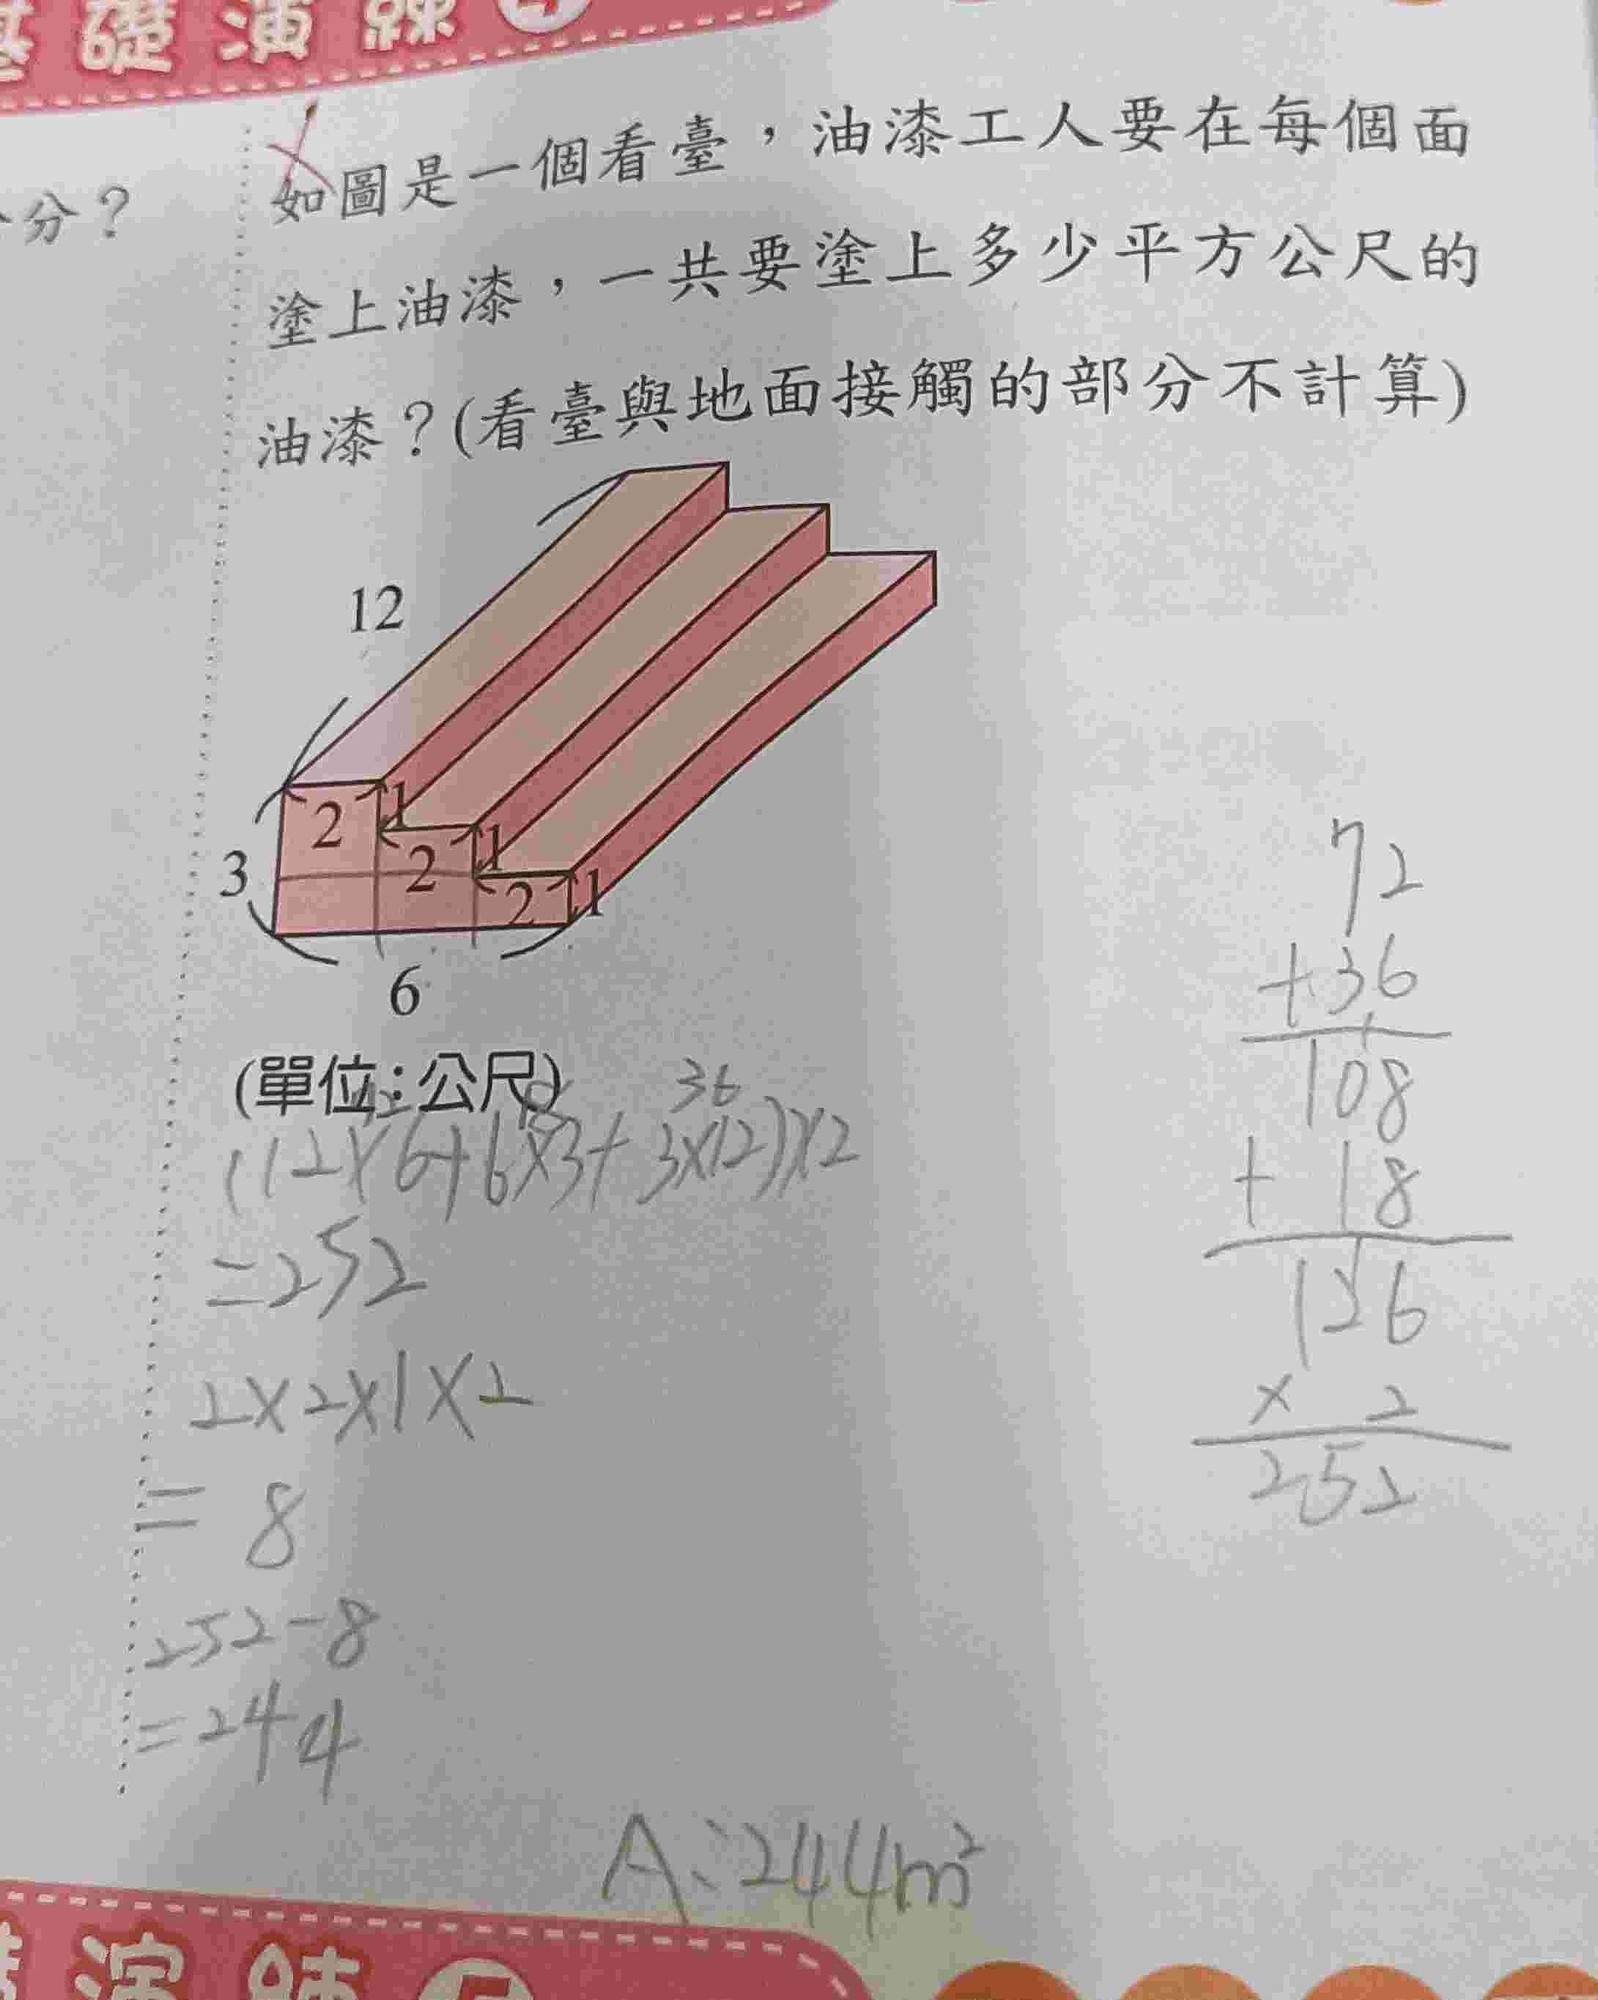 基礎演練
分?
如圖是一個看臺,油漆工人要在每個面
塗上油漆,一共要塗上多少平方公尺的
油漆?(看臺與地面接觸的部分不計算)
12
2
1
3
2
1
2
1
6
(單位:公尺)
36
(12×6+6×3+3×12)×2
=252
2×2×1×2
=8
252-8
=244
A:244m²
72
+36
108
+18
126
×2
252
演練5